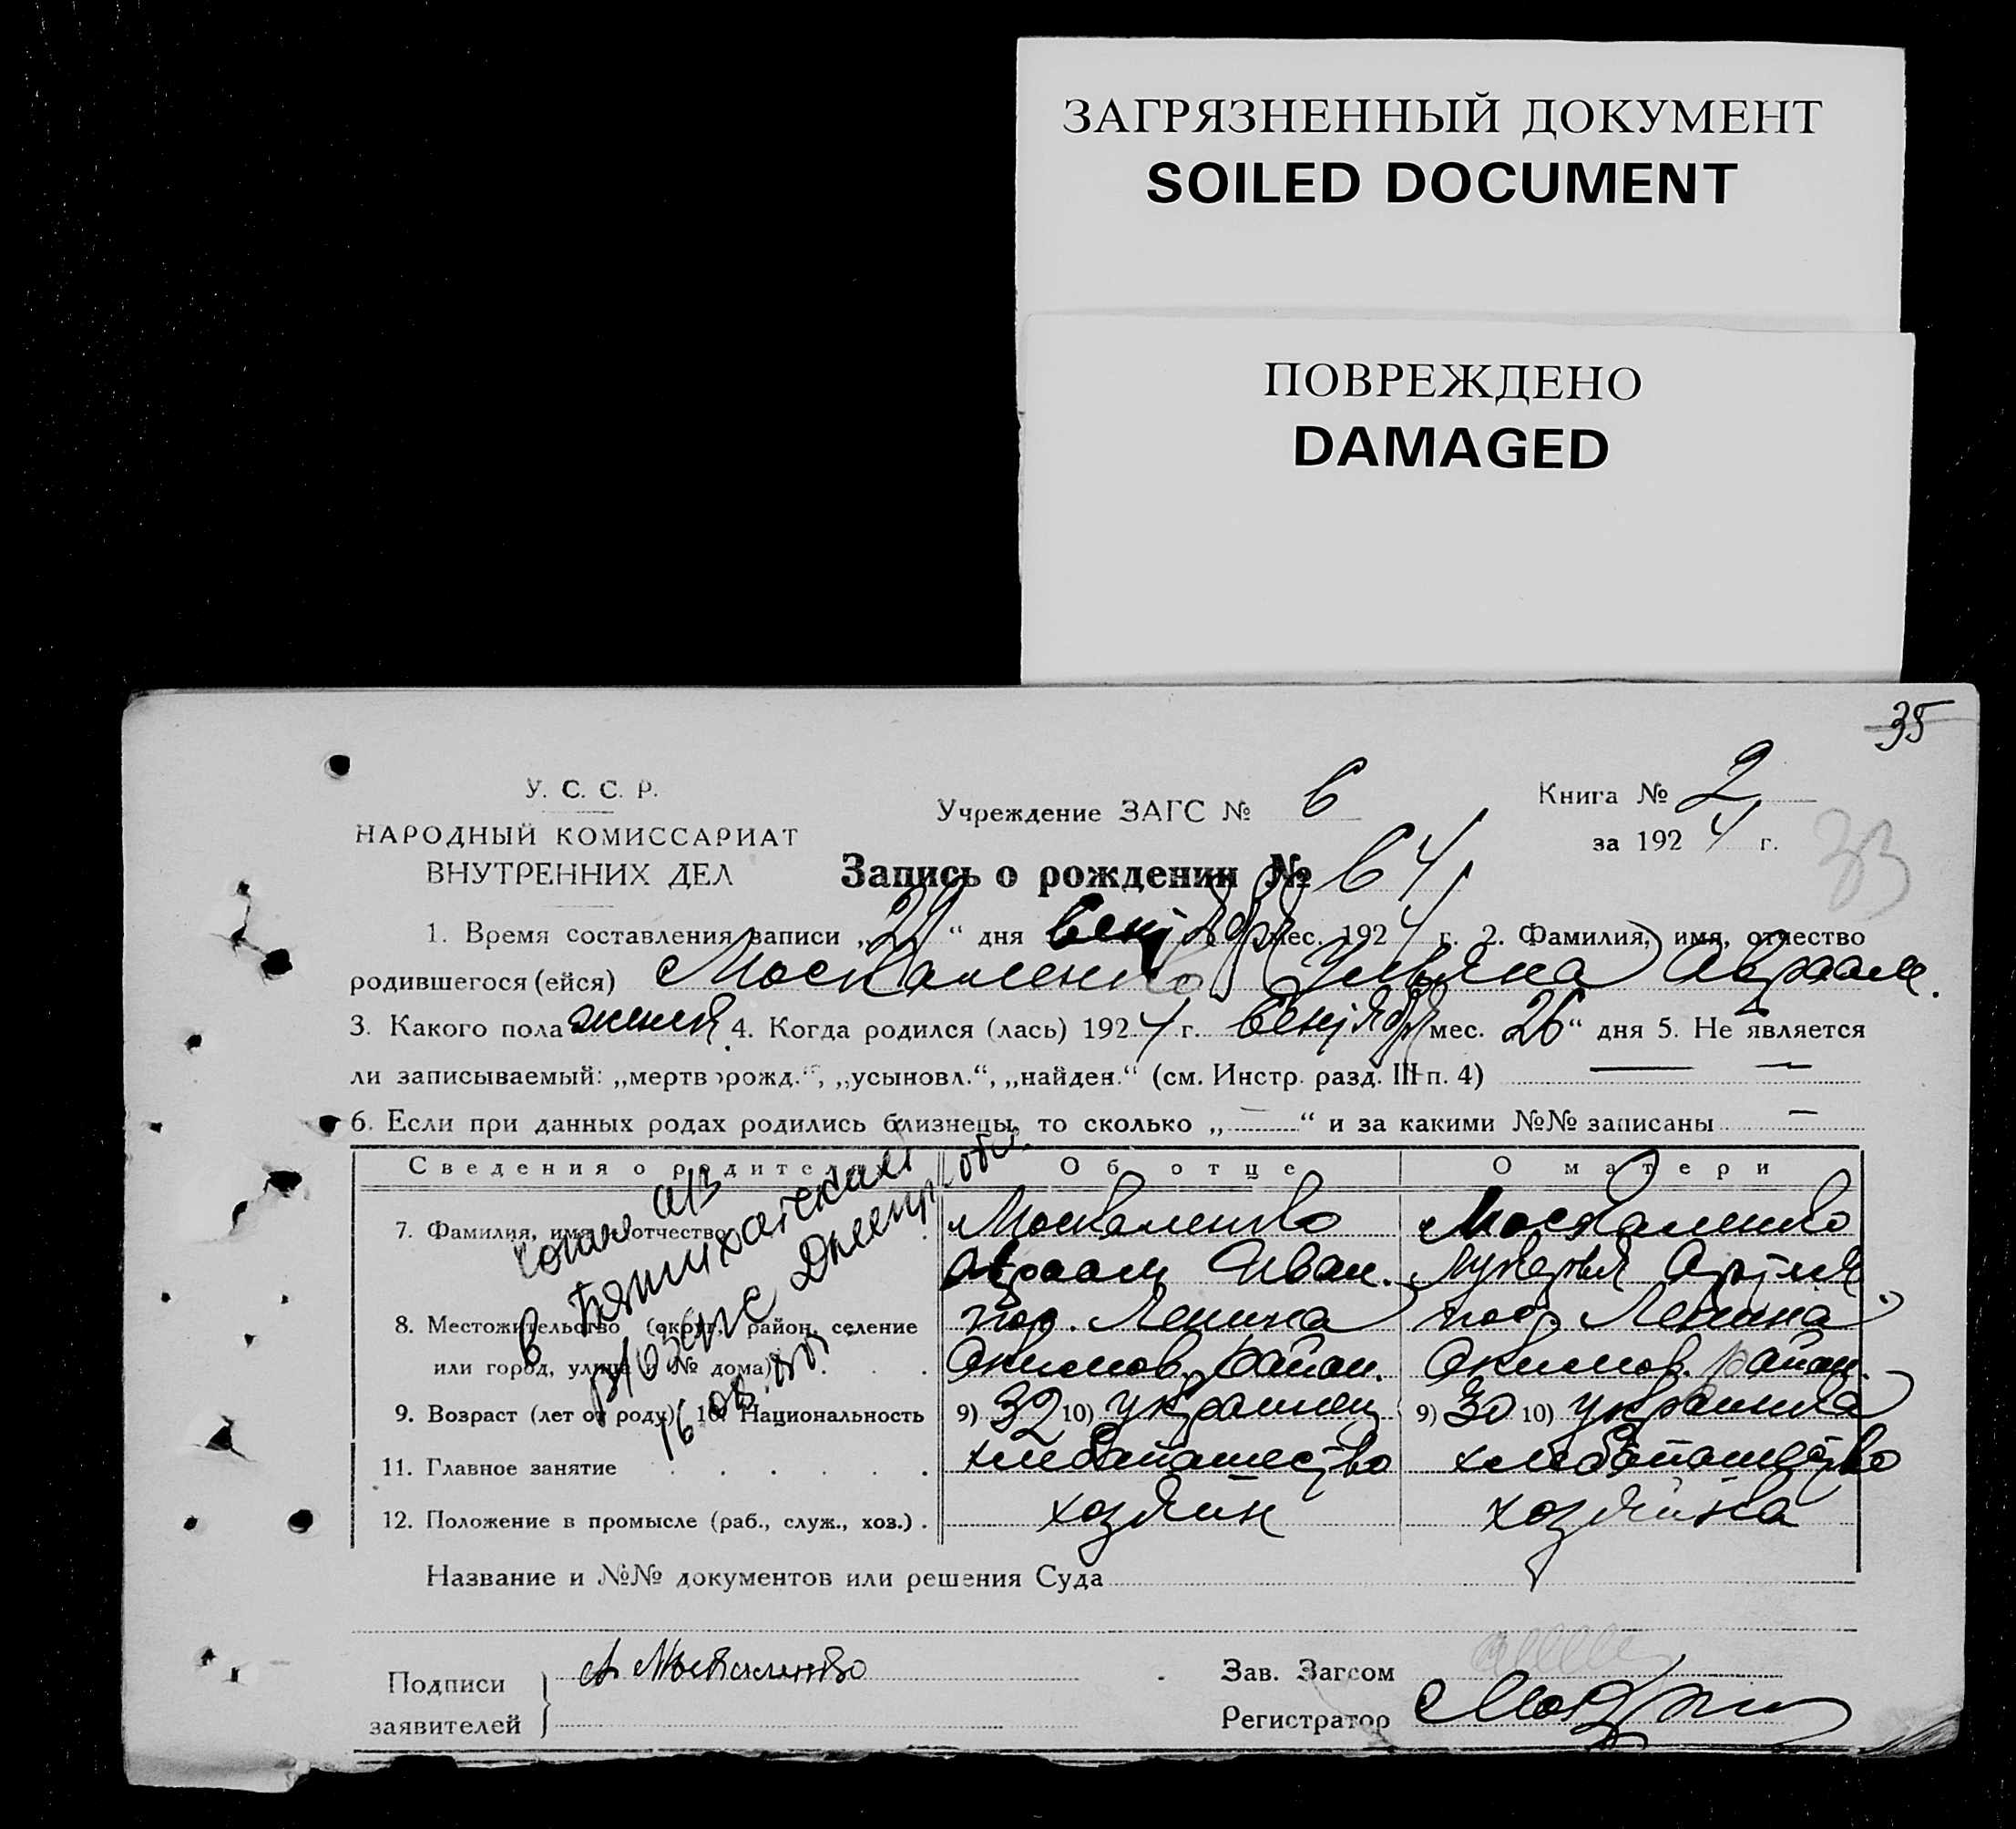 ЗАГРЯЗНЕННЫЙ ДОКУМЕНТ
SOILED DOCUMENT
ПОВРЕЖДЕНО
DAMAGED
35
33
У. С. С. Р.
НАРОДНЫЙ КОМИССАРИАТ
ВНУТРЕННИХ ДЕЛ
Учреждение ЗАГС № 6
Книга № 2
за 1924 г.
Запись о рождении № 64
1. Время составления записи „29“ дня Сентября мес. 1924 г. 2. Фамилия, имя, отчество
родившегося (ейся) Москаленко Ульяна Авраам.
3. Какого пола женск. 4. Когда родился (лась) 1924 г. Сентября мес. 26“ дня 5. Не является
ли записываемый: „мертворожд.“, „усыновл.“, „найден.“ (см. Инстр. разд. III п. 4) — —
6. Если при данных родах родились близнецы, то сколько „—“ и за какими №№ записаны —
Сведения о родителях Об отце О матери
7. Фамилия, имя и отчество Москаленко Москаленко
Авраам Иван. Лукерья Артем.
8. Местожительство (округ, район, селение пос. Ленина пос. Ленина
или город, улица и № дома) Акимов. район. Акимов. район.
9. Возраст (лет от роду) 10. Национальность 9) 32 10) украинец 9) 30 10) украинка
11. Главное занятие хлебопашество хлебопашество
12. Положение в промысле (раб., служ., хоз.) хозяин хозяйка
копия а/з
в Пятихатский
р/озагс Днепр. обл.
Название и №№ документов или решения Суда
Подписи
заявителей
А Москаленко
Зав. Загсом
Регистратор